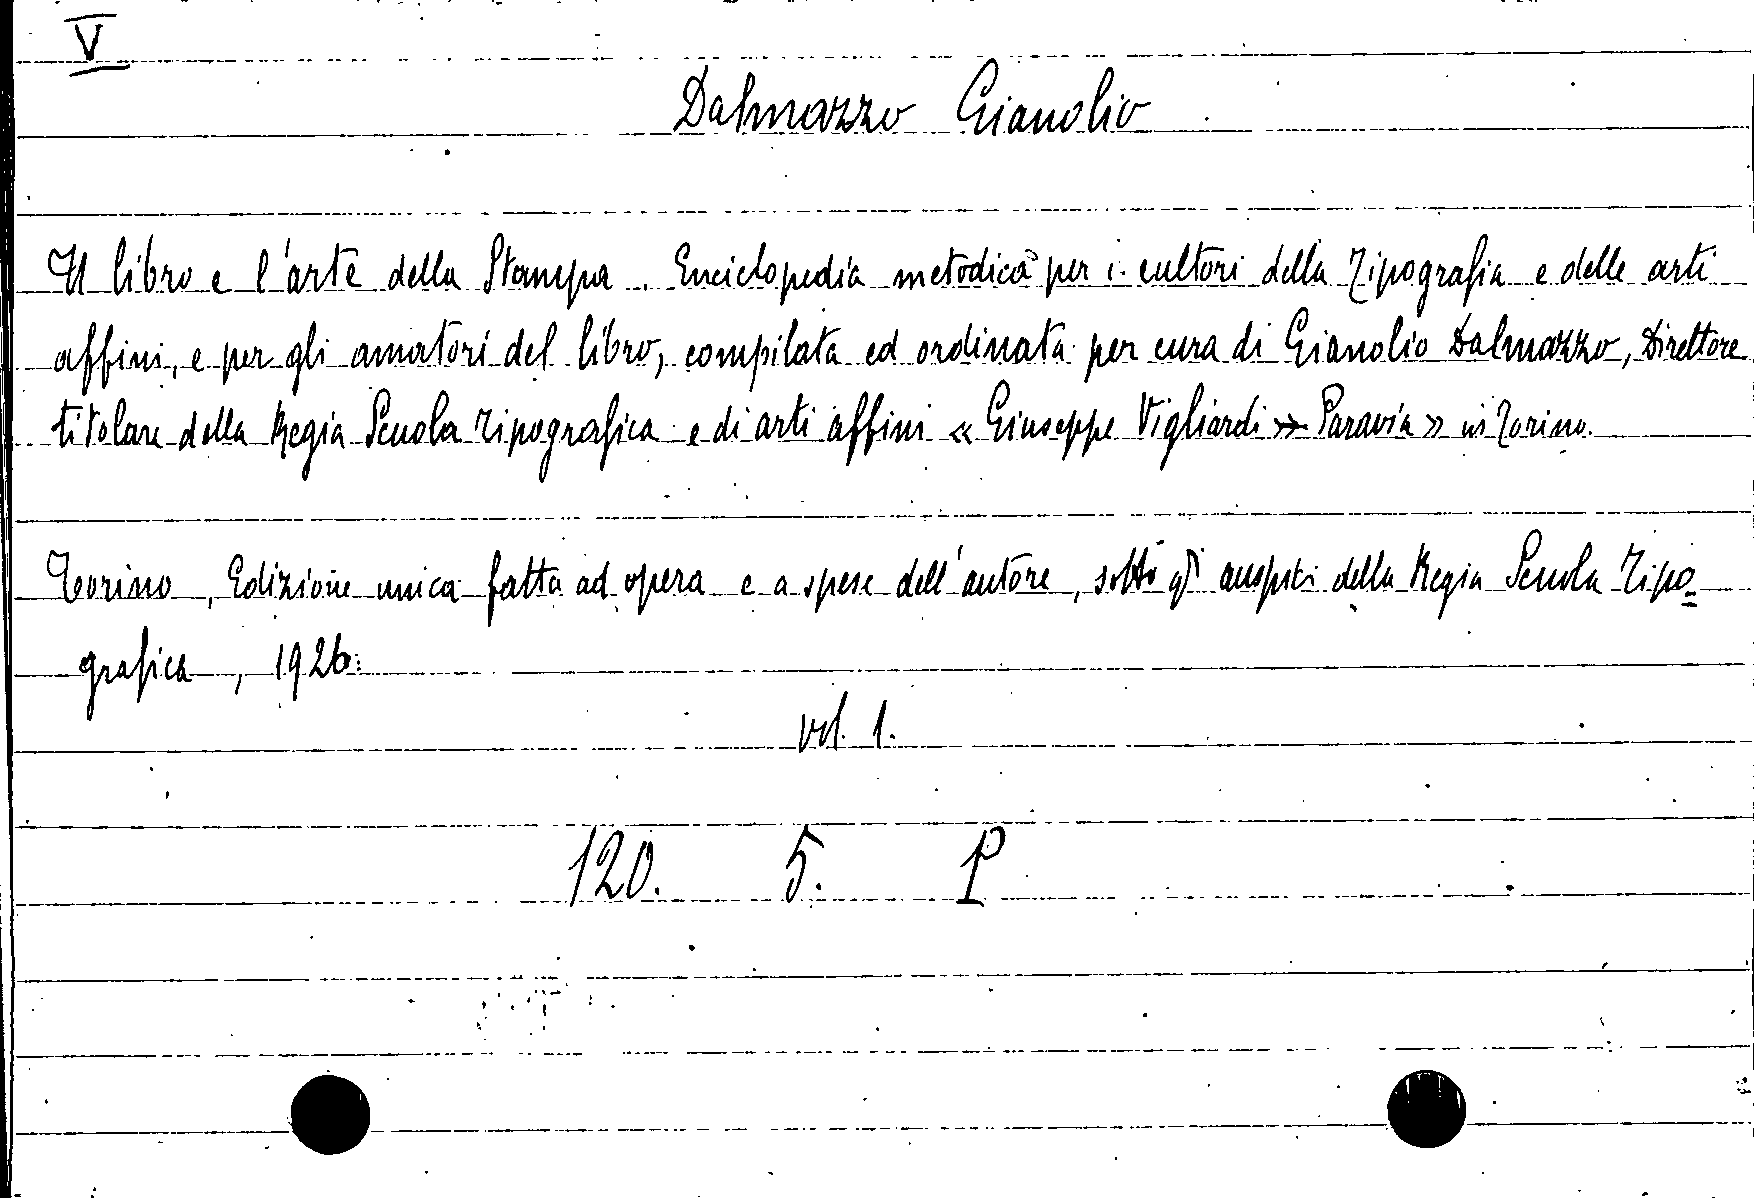 V
Dalmazzo Gianolio
Il libro e l'arte della Stampa. Enciclopedia metodica per i cultori della Tipografia e delle arti
affini, e per gli amatori del libro, compilata ed ordinata per cura di Gianolio Dalmazzo, Direttore
titolare della Regia Scuola Tipografica e di arti affini « Giuseppe Vigliardi » Paravia » in Torino.
Torino, Edizione unica fatta ad opera e a spese dell'autore, sotto gli auspici della Regia Scuola Tipo=
grafica, 1926.
vol. 1.
120. 5. P